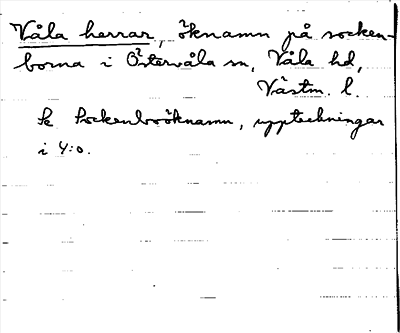 Våla herrar, öknamn på socken-
borna i Östervåla sn, Våla hd,
Västm. l.
Se Sockenboöknamn, uppteckningar
i 4:o.